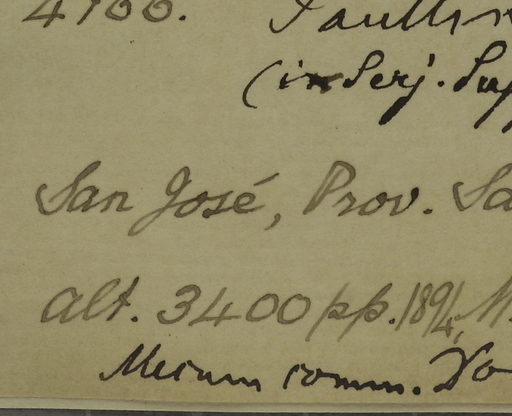 4700. Paullin
(in Serj. Sup
San José, Prov. Sa
alt. 3400 pp. 189/4, M.
Mecum comm. Do